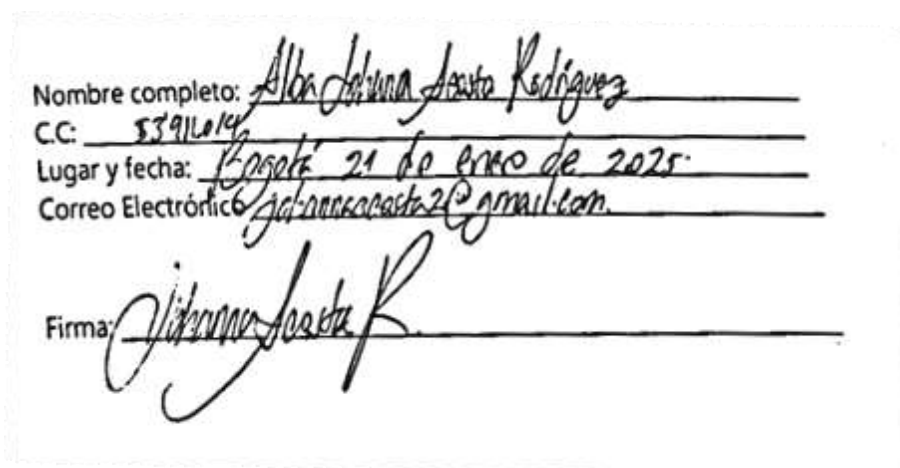 Nombre completo: Alba Johana Acosta Rodriguez
C.C:
Lugar y fecha: Bogotá 21 de enero de 2025.
Correo Electrónico johannaacosta2@gmail.com.
Firma: Johanna Acosta R.